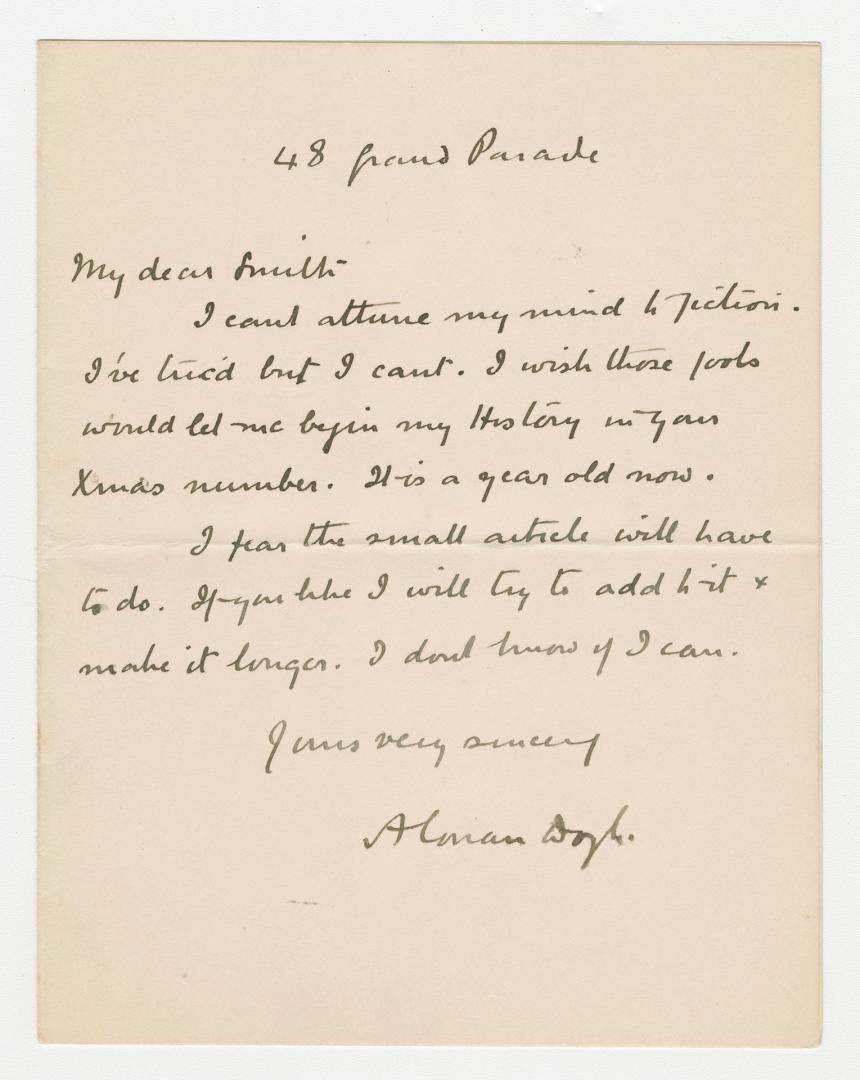 48 Grand Parade
My dear Smith
I cant attune my mind to fiction.
I've tried but I cant. I wish those fools
would let me begin my History in your
Xmas number. It is a year old now.
I fear the small article will have
to do. If you like I will try to add to it &
make it longer. I dont know if I can.
Yours very sincerely
A Conan Doyle.